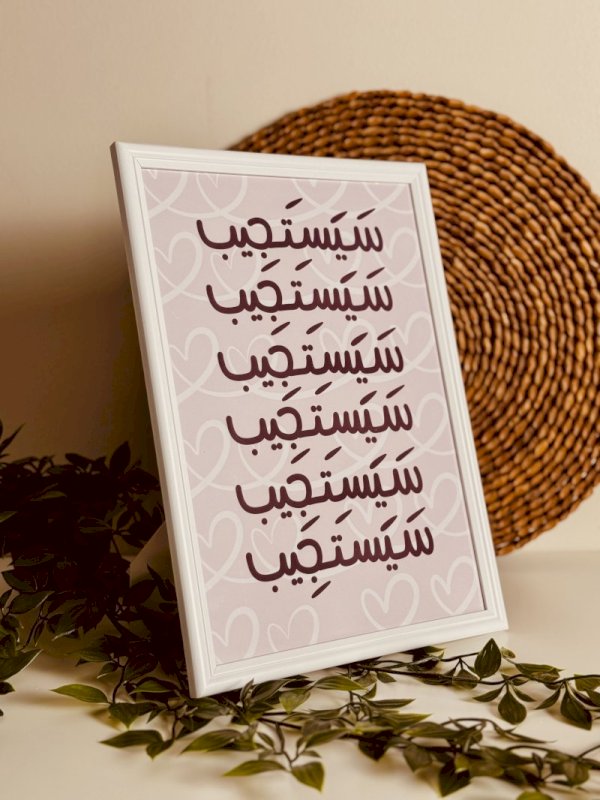 سَيَستَجيب
سَيَسَتَجَيب
سَيَسَتِجَيِب
سَيَسَتِجَيب
سَيَسَتَجَيَب
سَيَستَجِيب